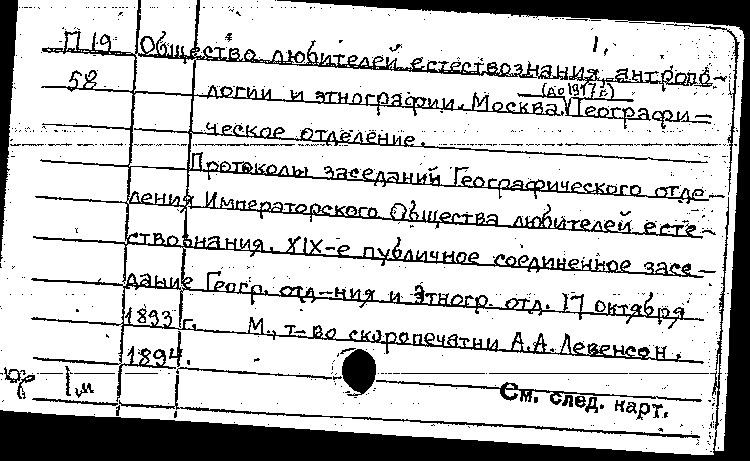 1.
П 19 Общество любителей естествознания, антропо-
58 логии и этнографии. Москва. (до 1917 г.) Географи=
ческое отделение.
Протоколы заседаний Географического отде-
ления Императорского Общества любителей есте-
ствознания. XIX-е публичное соединенное засе-
дание Геогр. отд-ния и Этногр. отд. 17 октября
1893 г. М., т-во скоропечатни А.А. Левенсон,
1894.
1м
См. след. карт.